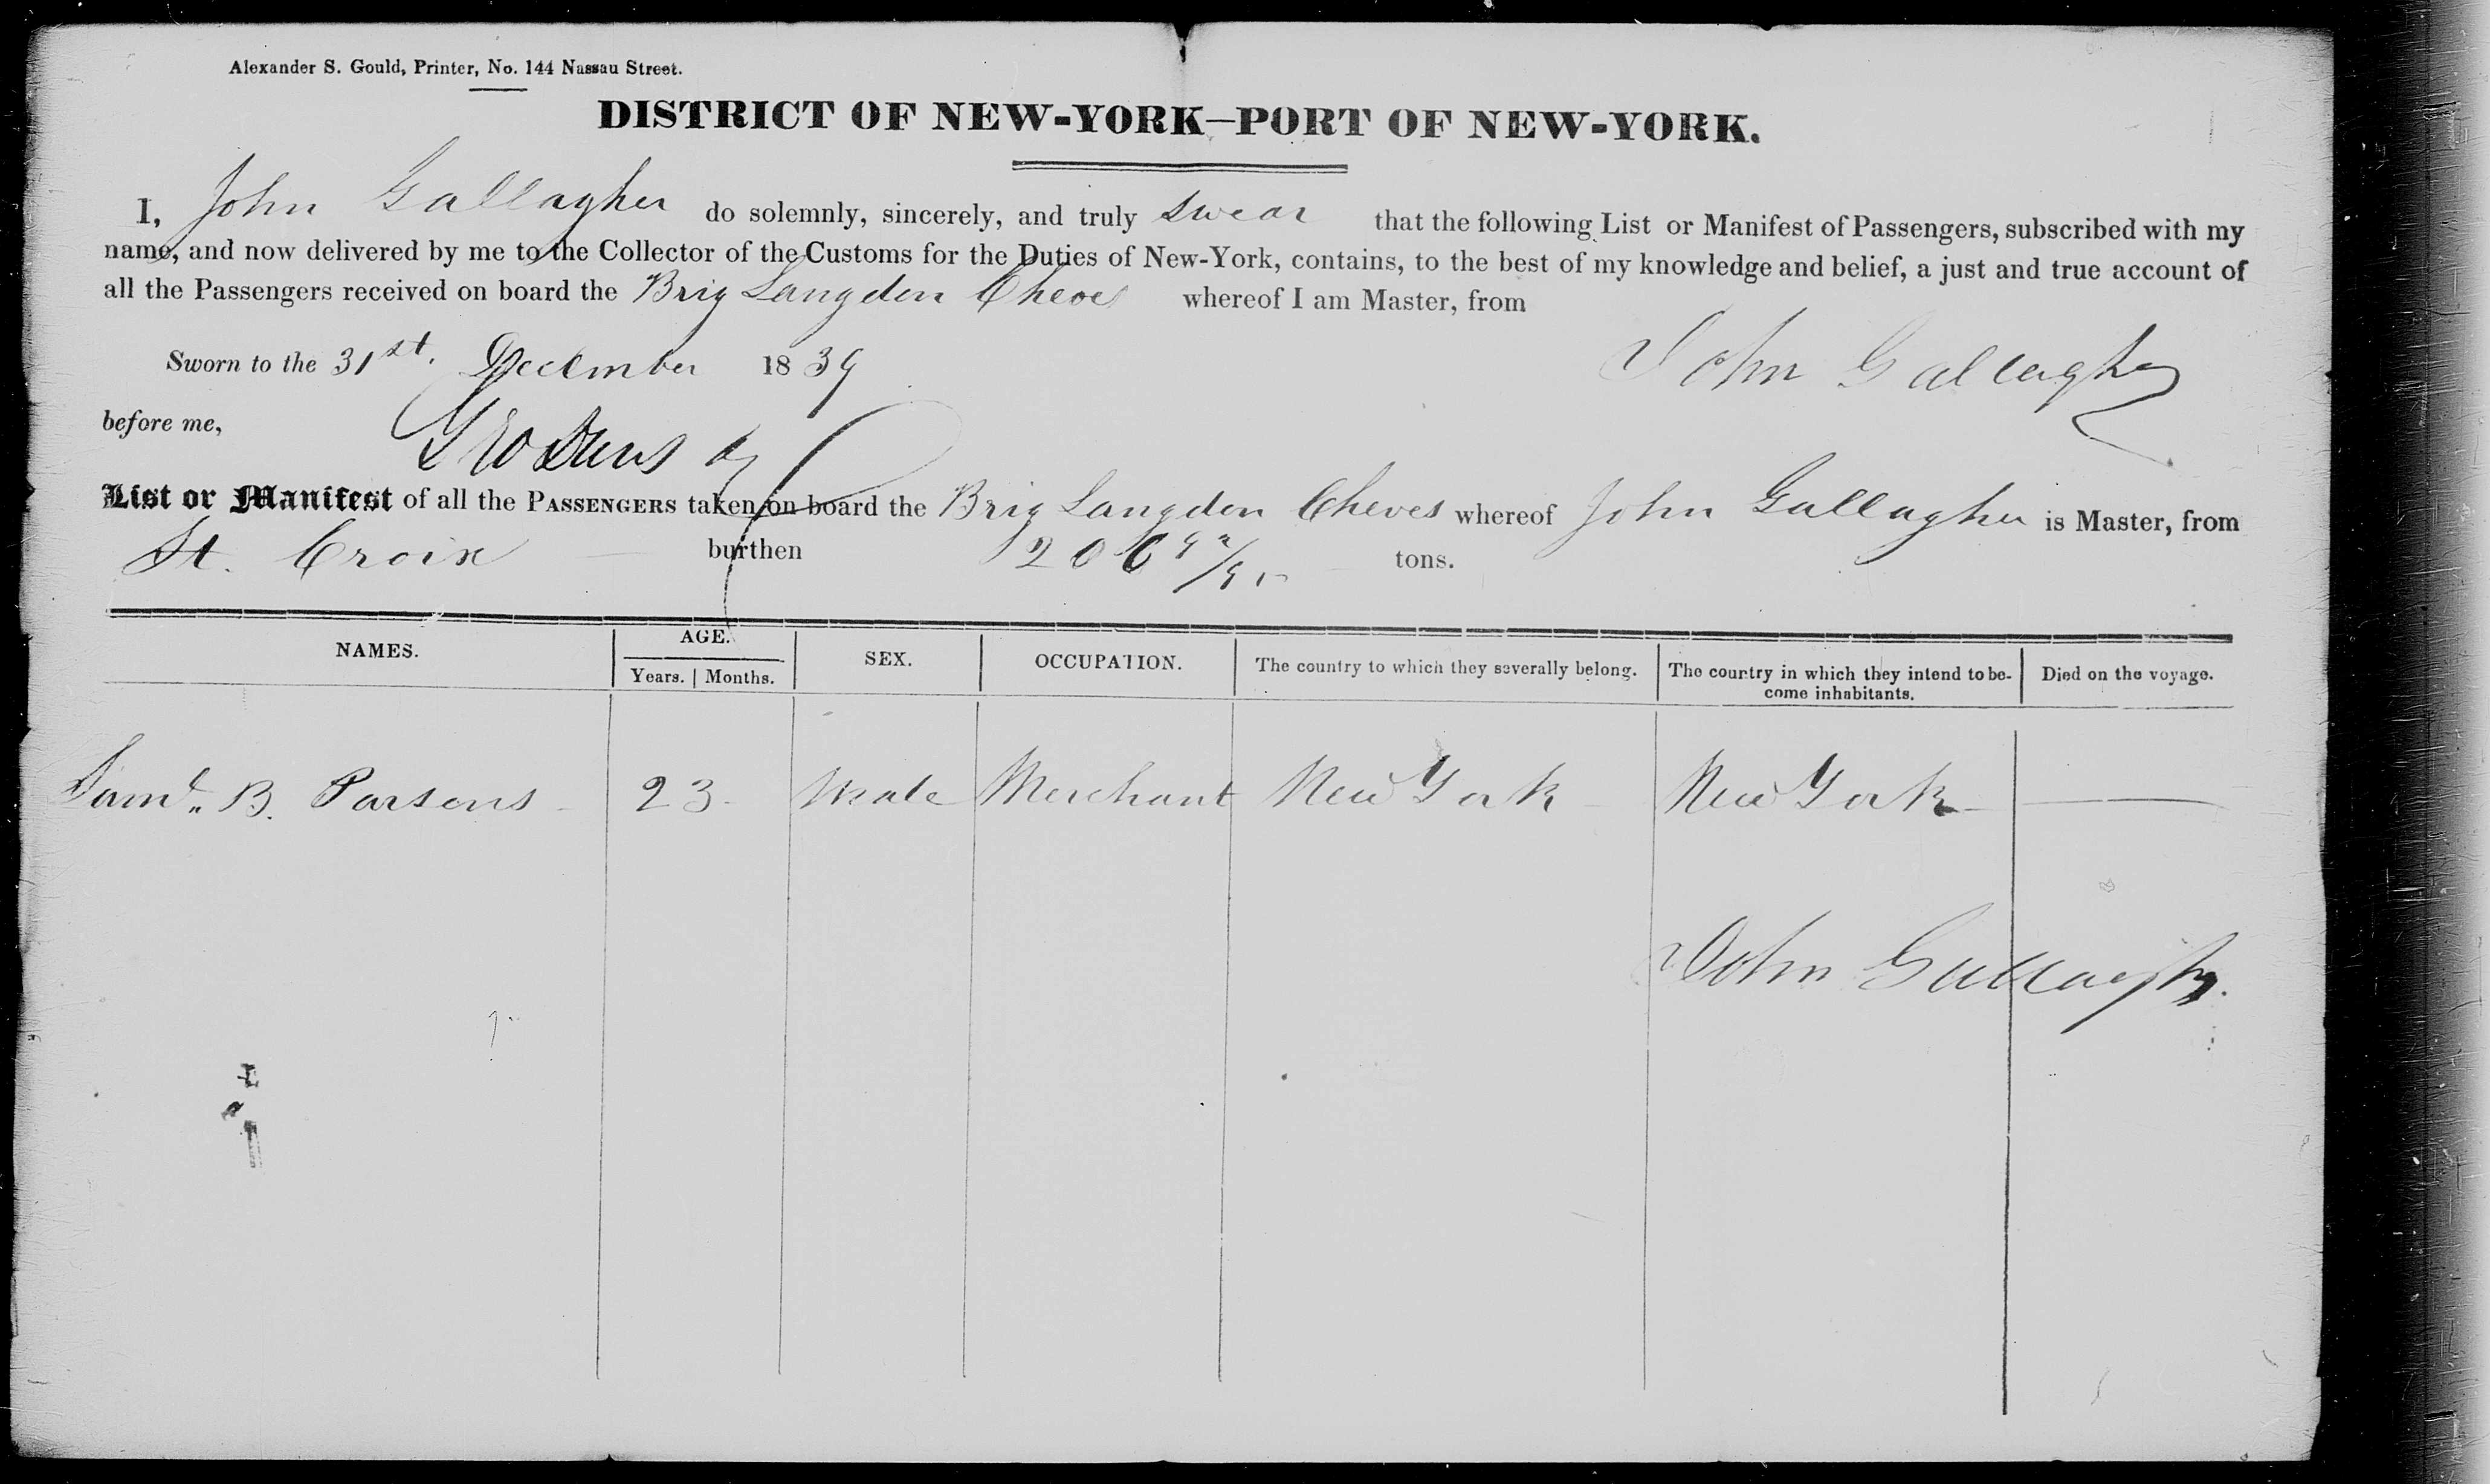 Alexander S. Gould, Printer, No. 144 Nassau Street.
DISTRICT OF NEW-YORK—PORT OF NEW-YORK.
I, John Gallagher do solemnly, sincerely, and truly swear that the following List or Manifest of Passengers, subscribed with my
name, and now delivered by me to the Collector of the Customs for the Duties of New-York, contains, to the best of my knowledge and belief, a just and true account of
all the Passengers received on board the Brig Langdon Cheves whereof I am Master, from
Sworn to the 31st. December 1839
John Gallagher
before me,
List or Manifest of all the PASSENGERS taken on board the Brig Langdon Cheves whereof John Gallagher is Master, from
St. Croix burthen tons.
NAMES. AGE. Years. | Months. SEX. OCCUPATION. The country to which they severally belong. The country in which they intend to be-
come inhabitants. Died on the voyage.
Saml. B. Parsons 23 Male Merchant New York New York —
John Gallagher.